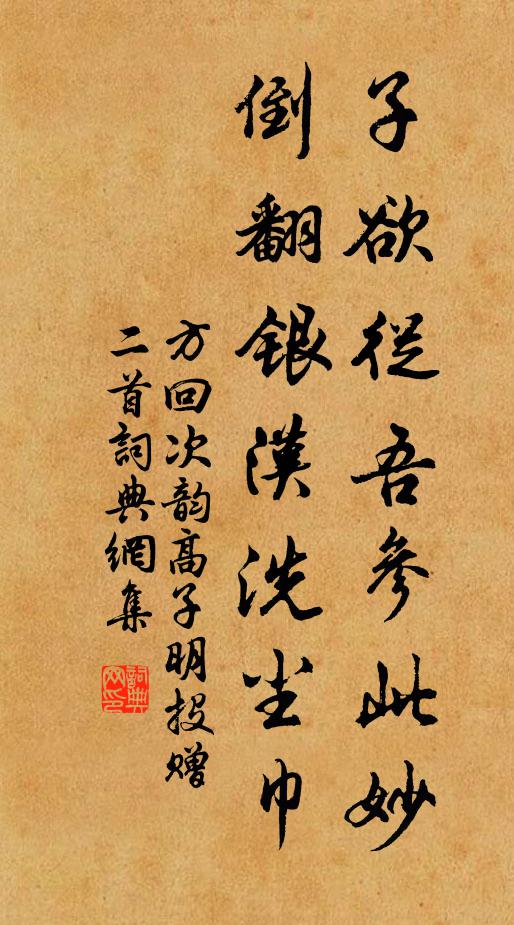 子欲從吾參此妙
倒翻銀漢洗尘巾
方回次韵高子明投赠
二首詞典網集
詞典
网印